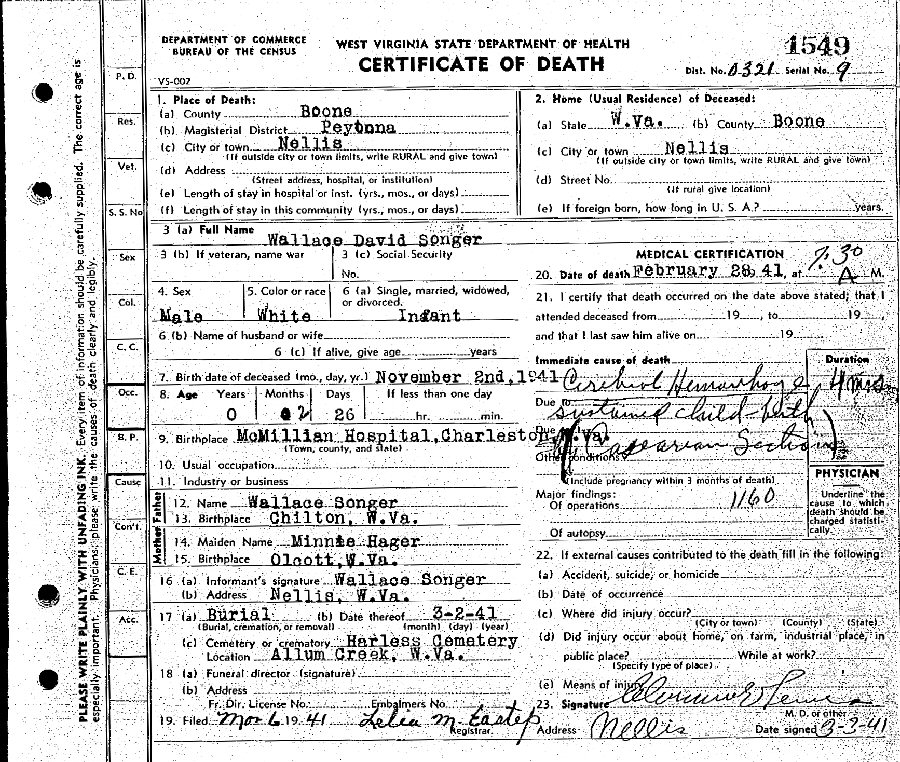 DEPARTMENT OF COMMERCE
BUREAU OF THE CENSUS
WEST VIRGINIA STATE DEPARTMENT OF HEALTH
CERTIFICATE OF DEATH
1549
Dist. No. 0321 Serial No. 9
VS-007
PLEASE WRITE PLAINLY WITH UNFADING INK. Every item of information should be carefully supplied. The correct age is
especially important. Physicians: please write the causes of death clearly and legibly.
P. D.
Res.
Vet.
S. S. No
Sex
Col.
C. C.
Occ.
B. P.
Cause
Con't.
C. E.
Acc.
1. Place of Death:
(a) County Boone
(b) Magisterial District Peytona
(c) City or town Nellis
(If outside city or town limits, write RURAL and give town)
(d) Address
(Street address, hospital, or institution)
(e) Length of stay in hospital or inst. (yrs., mos., or days)
(f) Length of stay in this community (yrs., mos., or days)
2. Home (Usual Residence) of Deceased:
(a) State W.Va. (b) County Boone
(c) City or town Nellis
(If outside city or town limits, write RURAL and give town)
(d) Street No.
(If rural give location)
(e) If foreign born, how long in U. S. A.? years.
3 (a) Full Name
Wallace David Songer
3 (b) If veteran, name war
3 (c) Social Security
No.
4. Sex
Male
5. Color or race
White
6 (a) Single, married, widowed,
or divorced.
Infant
6 (b) Name of husband or wife
6 (c) If alive, give age years
7. Birth date of deceased (mo., day, yr.) November 2nd, 1941
8. Age Years Months Days If less than one day
0 02 26 hr. min.
9. Birthplace McMillian Hospital, Charleston, W.Va.
(Town, county, and state)
10. Usual occupation
11. Industry or business
Father
12. Name Wallace Songer
13. Birthplace Chilton, W.Va.
Mother
14. Maiden Name Minnie Hager
15. Birthplace Olcott, W.Va.
16 (a) Informant's signature Wallace Songer
(b) Address Nellis, W.Va.
17 (a) Burial (b) Date thereof 3-2-41
(Burial, cremation, or removal) (month) (day) (year)
(c) Cemetery or crematory Harless Cemetery
Location Allum Creek, W.Va.
18 (a) Funeral director (signature)
(b) Address
Fr. Dir. License No. Embalmers No.
19. Filed Mar 6 1941 Lelia M. Eastep
Registrar.
MEDICAL CERTIFICATION
20. Date of death February 28, 41, at 7:30 A M.
21. I certify that death occurred on the date above stated; that I
attended deceased from 19 , to 19 ,
and that I last saw him alive on 19
Immediate cause of death Duration
Cerebral Hemorrhage, 4 mos
Due to
sustained child-birth
Due to
(by Caesarian Section)
Other conditions
(Include pregnancy within 3 months of death)
Major findings:
Of operations 1160
Of autopsy
PHYSICIAN
Underline the
cause to which
death should be
charged statisti-
cally.
22. If external causes contributed to the death fill in the following:
(a) Accident, suicide, or homicide
(b) Date of occurrence
(c) Where did injury occur?
(City or town) (County) (State)
(d) Did injury occur about home, on farm, industrial place, in
public place? While at work?
(Specify type of place)
(e) Means of injury
23. Signature
M. D. or other
Address Nellis Date signed 3-3-41